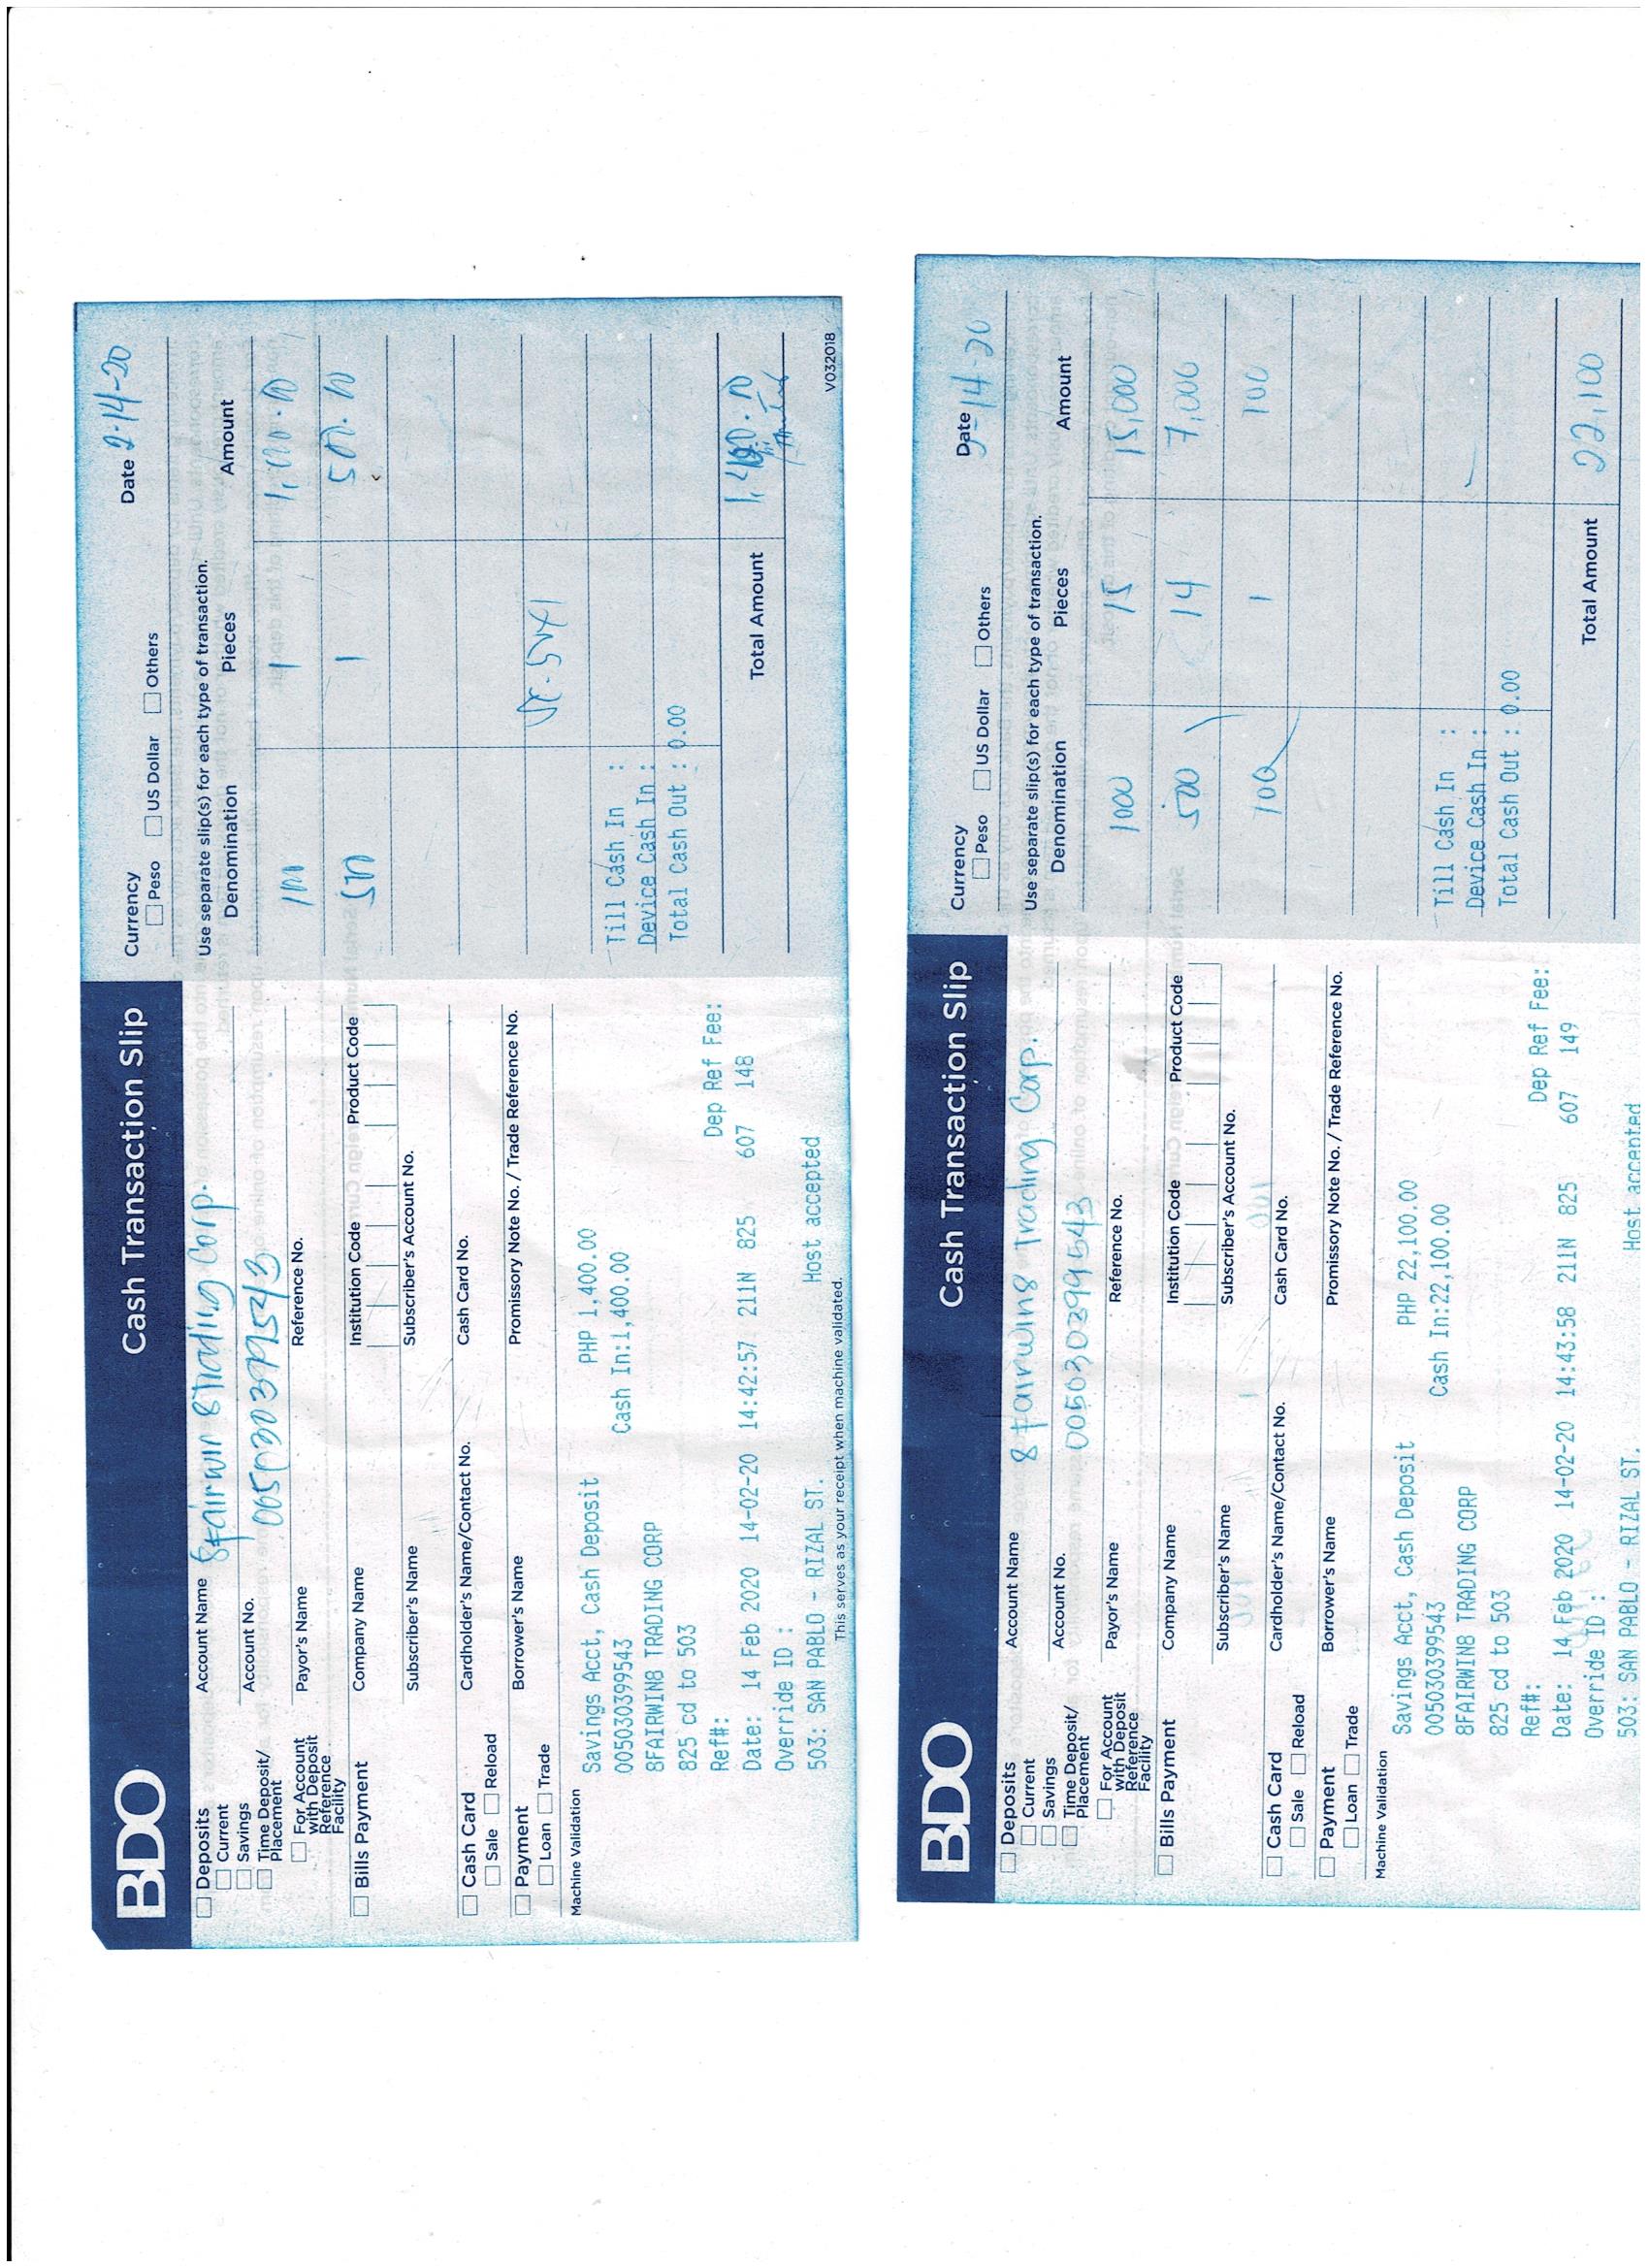 BDO Cash Transaction Slip
Currency
Peso US Dollar Others
Date 2-14-20
Deposits
Current
Savings
Time Deposit/
Placement
For Account
with Deposit
Reference
Facility
Account Name 8fairwin 8 trading Corp.
Account No. 005030399543
Payor's Name Reference No.
Bills Payment
Company Name Institution Code Product Code
Subscriber's Name Subscriber's Account No.
Cash Card
Sale Reload
Cardholder's Name/Contact No. Cash Card No.
Payment
Loan Trade
Borrower's Name Promissory Note No. / Trade Reference No.
Machine Validation
Savings Acct, Cash Deposit PHP 1,400.00
005030399543 Cash In:1,400.00
8FAIRWIN8 TRADING CORP
825 cd to 503
Ref#: Dep Ref Fee:
Date: 14 Feb 2020 14-02-20 14:42:57 211N 825 607 148
Override ID :
503: SAN PABLO - RIZAL ST. Host accepted
This serves as your receipt when machine validated.
Use separate slip(s) for each type of transaction.
Denomination Pieces Amount
1 1,000.00
1 500.00
Till Cash In :
Device Cash In :
Total Cash Out : 0.00
Total Amount
V032018
BDO Cash Transaction Slip
Currency
Peso US Dollar Others
Date 2-14-20
Deposits
Current
Savings
Time Deposit/
Placement
For Account
with Deposit
Reference
Facility
Account Name 8 fairwin8 Trading Corp.
Account No. 005030399543
Payor's Name Reference No.
Bills Payment
Company Name Institution Code Product Code
Subscriber's Name Subscriber's Account No.
Cash Card
Sale Reload
Cardholder's Name/Contact No. Cash Card No.
Payment
Loan Trade
Borrower's Name Promissory Note No. / Trade Reference No.
Machine Validation
Savings Acct, Cash Deposit PHP 22,100.00
005030399543 Cash In:22,100.00
8FAIRWIN8 TRADING CORP
825 cd to 503
Ref#: Dep Ref Fee:
Date: 14 Feb 2020 14-02-20 14:43:58 211N 825 607 149
Override ID :
503: SAN PABLO - RIZAL ST. Host accepted
Use separate slip(s) for each type of transaction.
Denomination Pieces Amount
1000 15 15,000
500 14 7,000
100 1 100
Till Cash In :
Device Cash In :
Total Cash Out : 0.00
Total Amount 22,100